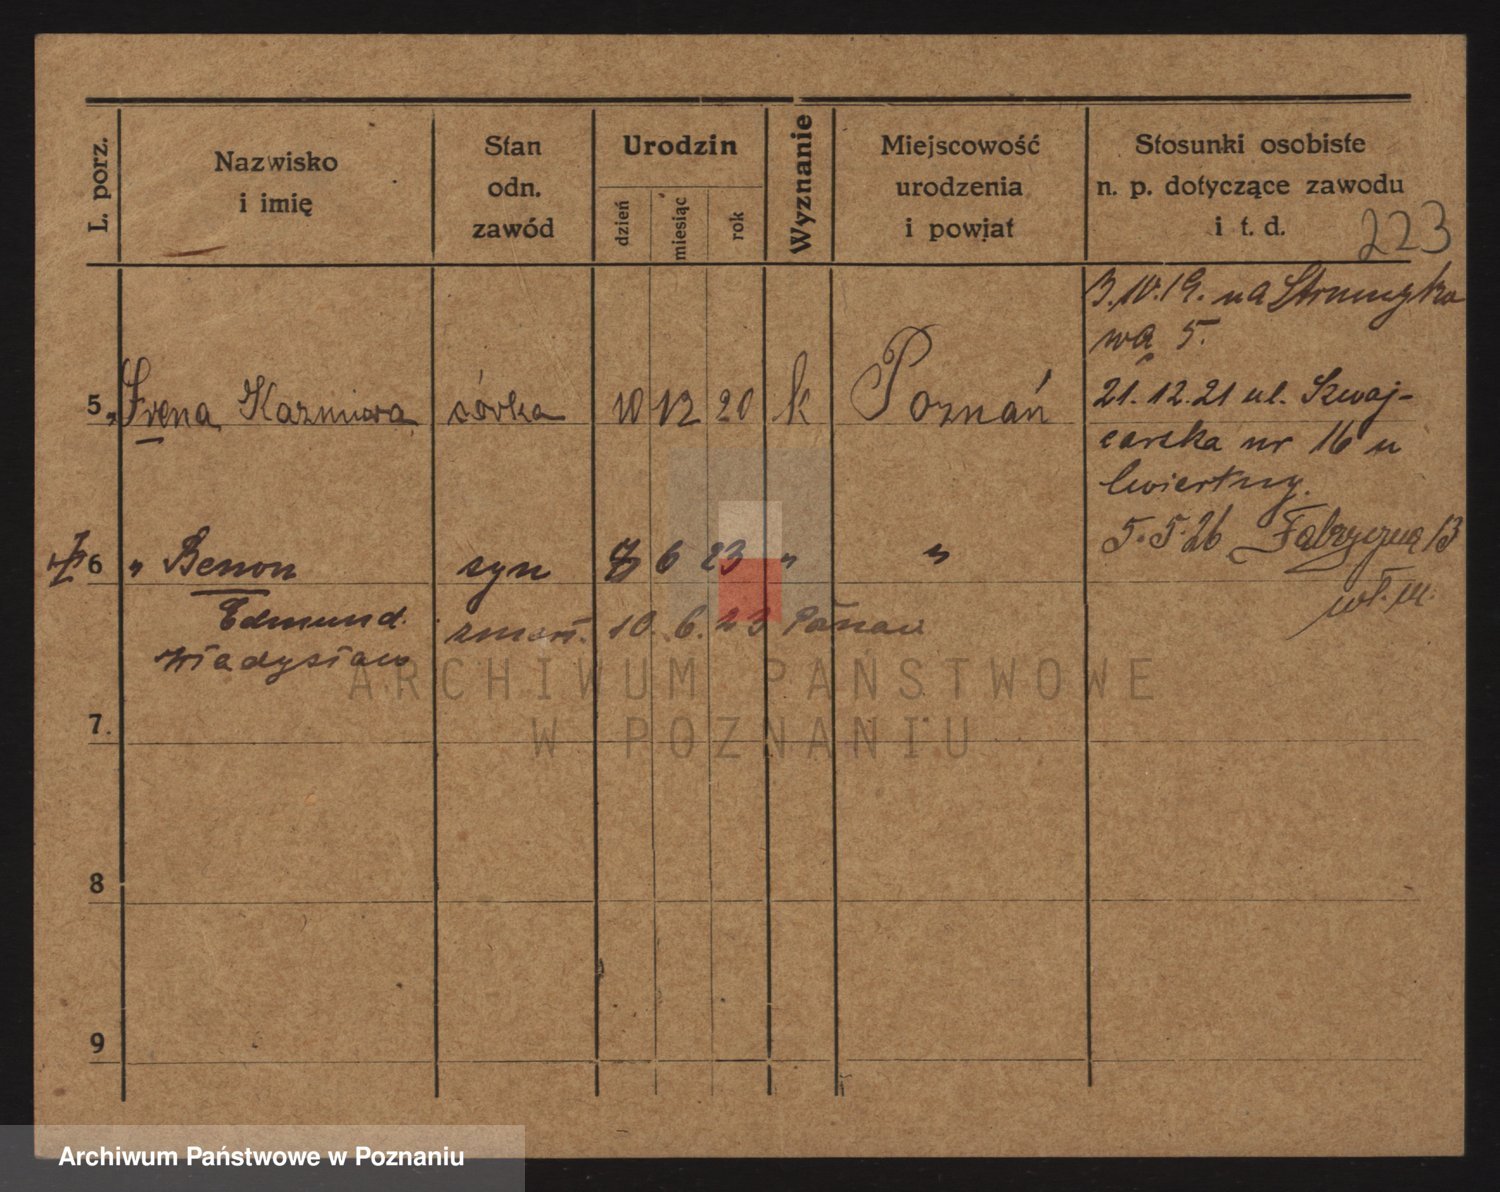 L. porz.
Nazwisko
i imię
Stan
odn.
zawód
Urodzin
dzień
miesiąc
rok
Wyznanie
Miejscowość
urodzenia
i powiat
Stosunki osobiste
n. p. dotyczące zawodu
i t. d.
223
3.10.19. na Strumyko
wą 5.
5 „ Irena Kazmiera córka 10 12 20 k Poznań
21.12.21 ul. Szwaj-
carska nr 16 u
Cwiertny.
5.5.26 Fabryczną 13
6 „ Benon syn 7 6 23 „ „
Edmund
Władysław
zmarł. 10. 6. 23 Poznań
wł. m.
7.
8
9
ARCHIWUM PAŃSTWOWE
W POZNANIU
Archiwum Państwowe w Poznaniu